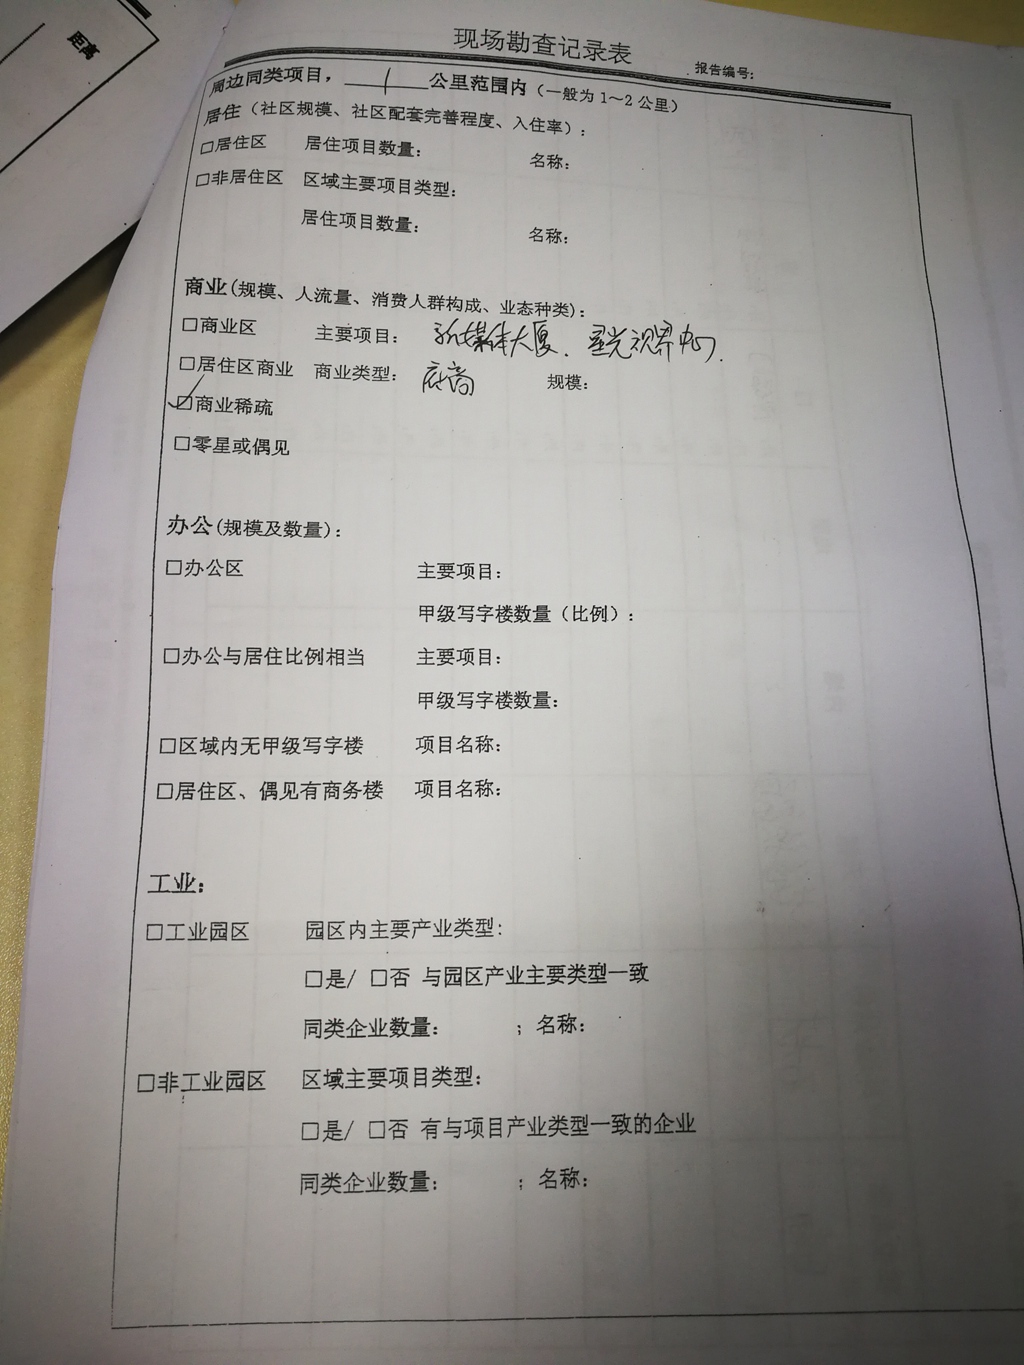 距离
现场勘查记录表
报告编号：
周边同类项目，1公里范围内（一般为1～2公里）
居住（社区规模、社区配套完善程度、入住率）：
□居住区 居住项目数量： 名称：
□非居住区 区域主要项目类型：
居住项目数量： 名称：
商业(规模、人流量、消费人群构成、业态种类)：
□商业区 主要项目：新媒体大厦、星光视界中心.
□居住区商业 商业类型：底商 规模：
☑商业稀疏
□零星或偶见
办公(规模及数量)：
□办公区 主要项目：
甲级写字楼数量（比例）：
□办公与居住比例相当 主要项目：
甲级写字楼数量：
□区域内无甲级写字楼 项目名称：
□居住区、偶见有商务楼 项目名称：
工业：
□工业园区 园区内主要产业类型：
□是/ □否 与园区产业主要类型一致
同类企业数量： ；名称：
□非工业园区 区域主要项目类型：
□是/ □否 有与项目产业类型一致的企业
同类企业数量： ；名称：